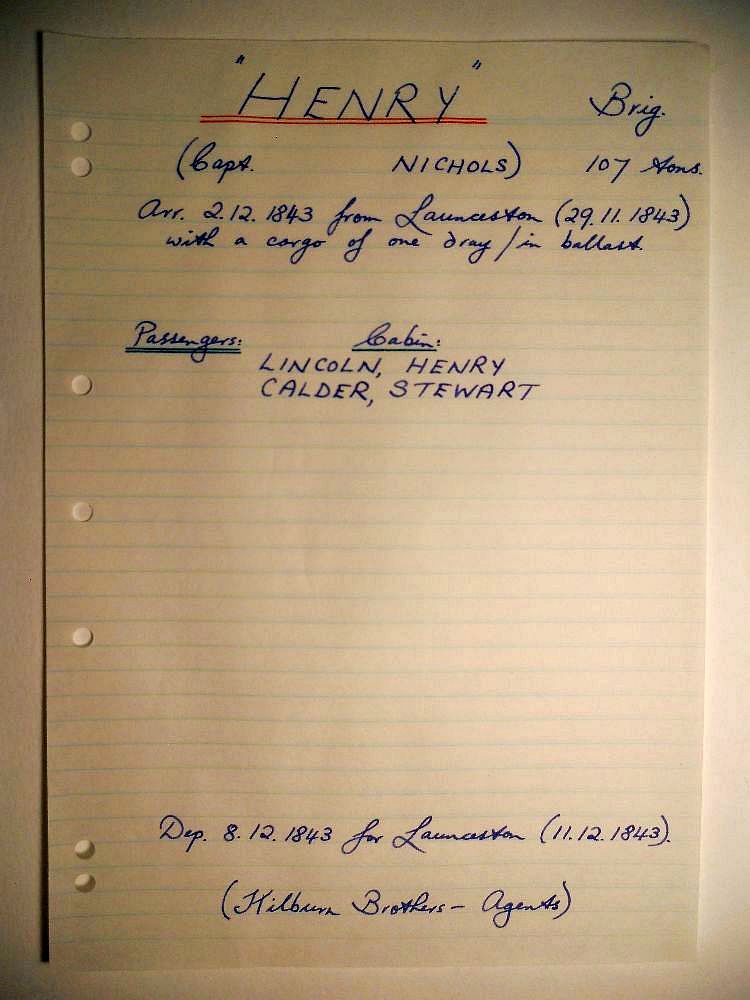 "HENRY" Brig.
(Capt. NICHOLS) 107 tons.
Arr. 2.12.1843 from Launceston (29.11.1843)
with a cargo of one dray / in ballast.
Passengers: Cabin:
LINCOLN, HENRY
CALDER, STEWART
Dep. 8.12.1843 for Launceston (11.12.1843).
(Kilburn Brothers - Agents)